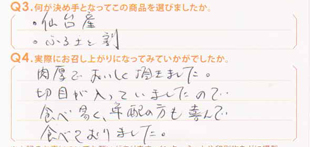 Q3.何が決め手となってこの商品を選びましたか。
・仙台産
・ふるさと割
Q4.実際にお召し上がりになってみていかがでしたか。
肉厚でおいしく頂きました。
切目が入っていましたので
食べ易く、年配の方も喜んで
食べておりました。